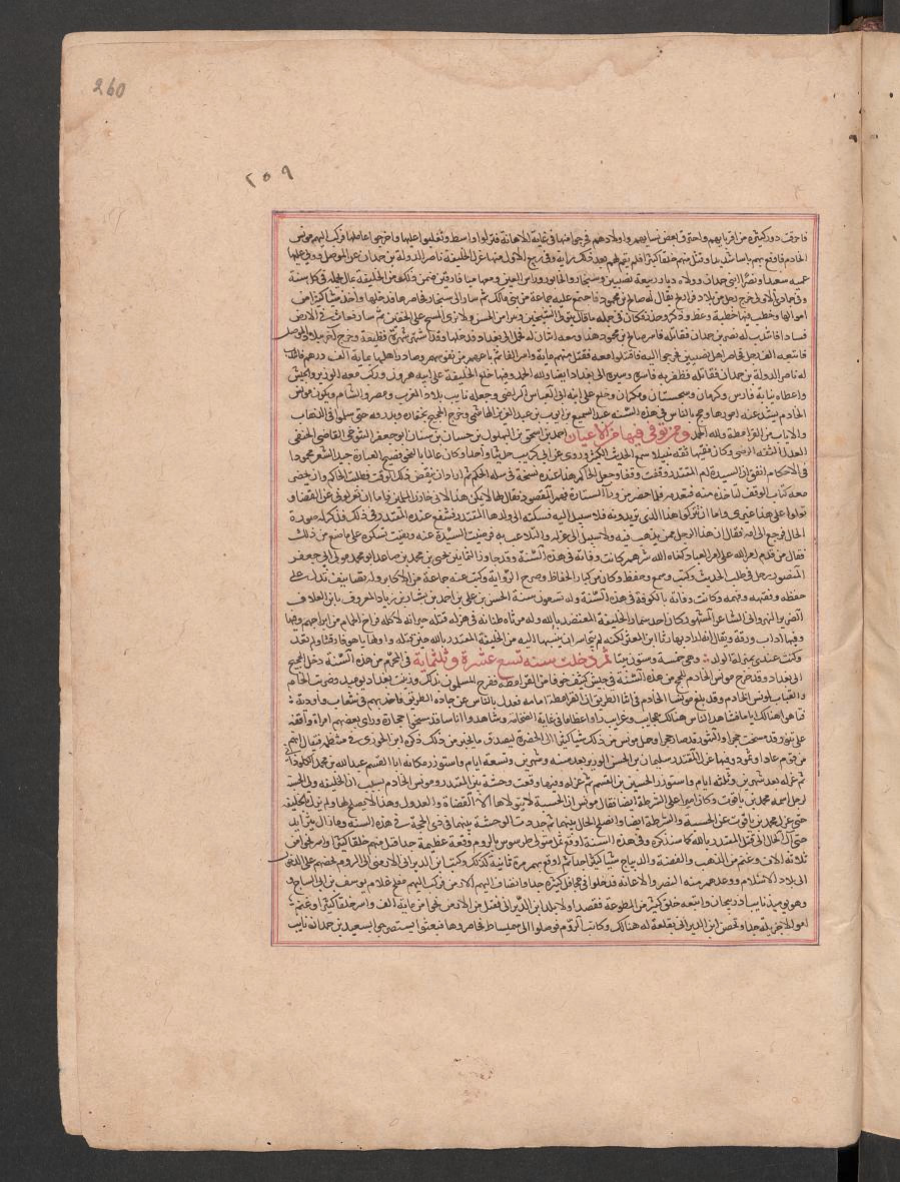 260
٢٥٩
فاحرقت دور كثيرة من اقربايهم واحترق بعض نسايهم واولادهم فخرجوا منها في غاية الاهانة فنزلوا واسط وتغلبوا عليها واخرجوا عاملها فركب اليهم مونس
الخادم فاوقع بهم باسا شديدا وقتل منهم خلقا كثيرا فلم يقم لهم بعد ذلك راية وفي ربيع الاول منها عزل الخليفة ناصر الدولة بن حمدان عن الموصل وولى عليها
عميه سعيدا ونصرا ابني حمدان وولاه ديار ربيعة نصيبين وسنجار والخابور وراس العين ومعها ميا فارقين ضمن ذلك من الخليفة بمال يحمله في كل سنة
وفي جمادى الاولى خرج رجل من بلاد يقال له صالح بن محمود فاجتمع عليه جماعة من بني مالك ثم سار الى سنجار فحاصرها فدخلها واخذ شيا كثيرا من
اموالها وخطب فيها خطبة وعظ وذكر وحذر فكان في جملة ما قال نتولى الشيخين ونبرا من الحسين ولا نرى المسح على الخفين ثم سار فعاث في الارض
فسادا فانتدب له نصر بن حمدان فقاتله فاسر صالح بن محمود هذا ومعه ابنان له فحمل الى بغداد فدخلها وقد اشتهر شهرة فظيعة وخرج اخر ببلاد الموصل
فاتبعه الف رجل فحاصر اهل نصيبين فخرجوا اليه فاقتلوا معه فقتل منهم ماية واسر الفا ثم باعهم من نفوسهم وصادر اهلها بماية الف درهم فانتدب
له ناصر الدولة بن حمدان فقاتله فظفر به فاسره وسيره الى بغداد ايضا ولله الحمد وفيها خلع الخليفة على ابنه هرون وركب معه الوزير والجيش
واعطاه نيابة فارس وكرمان وسجستان ومكران وخلع على ابنه ابي العباس الراضي وجعله نايب بلاد المغرب ومصر والشام ويكون مونس
الخادم يسد عنه امورها وحج بالناس في هذه السنة عبد السميع بن ايوب بن عبد العزيز الهاشمي وخرج الحجيج بخفارة وبدرقة حتى سلموا في الذهاب
والاياب من القرامطة ولله الحمد وممن توفي فيها من الاعيان احمد بن اسحق بن البهلول بن حسان بن سنان ابو جعفر التنوخي القاضي الحنفي
العدل الثقة الرضي وكان فقيها ثقة نبيلا سمع الحديث الكثير وروى عن ابي كريب حديثا واحدا وكان عالما بالنحو فصيح العبارة جيد الشعر محمودا
في الاحكام اتفق ان السيدة ام المقتدر وقفت وقفا وجعل الحاكم هذا عنده نسخة في سلة الحكم ثم ارادت ان تنقض ذلك الوقف فطلبت الحاكم وان يحضر
معه كتاب الوقف لتاخذه منه فتعدمه فلما حضر من وراء الستارة فهم المقصود فقال لها لا يمكن هذا لاني خازن المسلمين فاما ان تعزلوني عن القضاء و
تولوا على هذا غيري واما ان تتركوا هذا الذي تريدونه فلا سبيل اليه فشكته الى ولدها المقتدر فشفع عنده المقتدر في ذلك فذكر له صورة
الحال فرجع الى امه فقال ان هذا الرجل ممن يرغب فيه ولا سبيل الى عزله والتلاعب به فرضيت السيدة عنه وبعثت تشكره على ما صنع من ذلك
فقال من قدم امر الله على امر العباد كفاه الله شرهم كانت وفاته في هذه السنة وقد جاوز الثمانين يحيى بن محمد بن صاعد ابو محمد مولى ابي جعفر
المنصور رحل في طلب الحديث وكتب وسمع وحفظ وكان من كبار الحفاظ وشيوخ الرواية وكتب عنه جماعة من الاكابر وله تصانيف تدل على
حفظه وفقهه وفهمه وكانت وفاته بالكوفة في هذه السنة وله تسعون سنة الحسن بن علي بن احمد بن بشار بن زياد المعروف بابن العلاف
الضرير النهرواني الشاعر المشهور وكان احد سمار الخليفة المعتضد بالله وله مرثاة طنانة في هر له قتله جيرانه لاكله فراخ الحمام من ابراجهم وفيها
وفيها اداب ورقة ويقال انه اراد بها رثا ابن المعتز لكنه لم يتجاسر ان ينسبها اليه من الخليفة المقتدر بالله حين قتله واولها يا هر فارقتنا ولم تعد
وكنت عندي بمنزلة الولد وهي خمسة وستون بيتا ثم دخلت سنة تسع عشرة وثلثماية في المحرم من هذه السنة دخل الحجيج
الى بغداد وقد خرج مونس الخادم للحج من هذه السنة في جيش كثيف خوفا من القرامطة ففرح المسلمون بذلك وزينت بغداد يوميذ وضربت الخيام
والقباب لمونس الخادم وقد بلغ مونسا الخادم في اثنا الطريق ان القرامطة امامه فعدل بالناس عن جادة الطريق فاخذ بهم في شعاب واودية
فتاهوا هنالك اياما فشاهد الناس هنالك عجايب وغرايب وراوا عظاما في غاية الضخامة وشاهدوا اناسا قد مسخوا حجارة وراى بعضهم امراة واقفة
على تنور قد مسخت حجرا والتنور قد صار حجرا وحمل مونس من ذلك شيا كثيرا الى الحضرة ليصدق ما يخبر من ذلك ذكره ابن الجوزي في منتظمه فيقال انهم
من قوم عاد او ثمود وفيها عزل المقتدر سليمان بن الحسن الوزير بعد سنة وشهرين وتسعة ايام واستوزر مكانه ابا القسم عبيد الله بن محمد الكلوذاني
ثم عزله بعد شهرين وثلثة ايام واستوزر الحسين بن القسم ثم عزله وفيها وقعت وحشة بين المقتدر ومونس الخادم بسبب ان الخليفة ولى الحسبة
لرجل اسمه محمد بن ياقوت وكان اميرا على الشرطة ايضا فقال مونس ان الحسبة لا يتولاها الا القضاة والعدول وهذا لا يصلح لها ولم يزل بالخليفة
حتى عزل محمد بن ياقوت عن الحسبة والشرطة ايضا وانصلح الحال بينهما ثم تجددت الوحشة بينهما في ذي الحجة من هذه السنة وما زال يتزايد
حتى آل الحال الى قتل المقتدر بالله كما سنذكره وفي هذه السنة اوقع ثمل متولى طرسوس بالروم وقعة عظيمة جدا قتل منهم خلقا كثيرا واسر نحوا من
ثلاثة الاف وغنم من الذهب والفضة والديباج شيا كثيرا جدا ثم اوقع بهم مرة ثانية كذلك وكتب ابن الديراني الارمني الى الروم يحضهم على الدخول
الى بلاد الاسلام ووعدهم منه النصر والاعانة فدخلوا في جحافل كثيرة جدا وانضاف اليهم الارمن فركب اليهم مفلح غلام يوسف بن ابي الساج و
وهو يوميذ نايب اذربيجان واتبعه خلق كثير من المطوعة فقصد اولا بلد ابن الديراني فقتل من الارمن نحوا من ماية الف واسر خلقا كثيرا وغنم
اموالا جزيلة جدا وتحصن ابن الديراني بقلعة له هنالك وكاتب الروم فوصلوا الى سميساط فحاصروها فبعثوا يستصرخوا بسعيد بن حمدان نايب